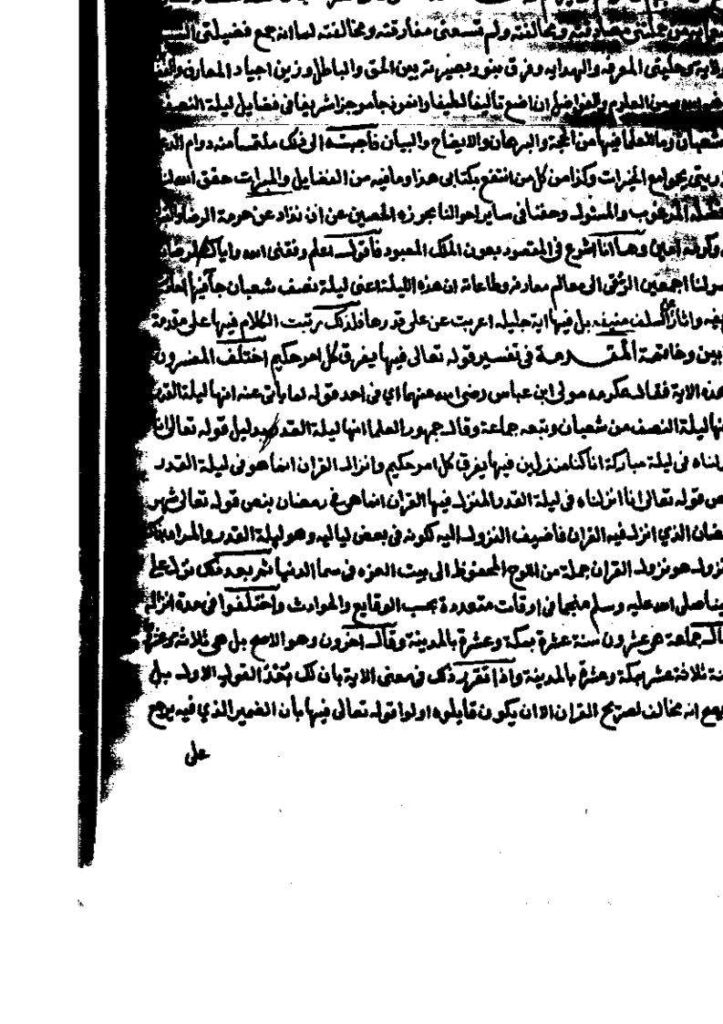 ولم تسعنى مفارقته ومخالفته لما انه جمع فضيلتى
وحليتى المعرفه والهدايه وفرق بنور بصيرته بين الحق والباطل وزين اجياد المعارف
من العلوم والفرائض ان اضع تاليفا لطيفا وانموذجا موجزا شريفا فى فضايل ليلة النصف
شعبان وما للعلما فيها من الحجة والبرهان والايضاح والبيان فاجبته الى ذلك ملتمسا منه دوام
بجوامع الخيرات وكذا من كل من انتفع بكتابى هذا وما فيه من الفضايل والمبرات حقق الله
المرغوب والمسئول وحفنا فى ساير احوالنا بحرزه الحصين عن ان نذاد عن حومة الرضا
وها انا اشرع فى المقصود بعون الملك المعبود فأقول اعلم وفقنى الله واياك
اجمعين الرقى الى معالم معارفه وطاعاته ان هذه الليلة اعنى ليلة نصف شعبان جآ فيها
واثار السلف منيفه بل فيها اية جليله اعربت عن على قدرها فلذلك رتبت الكلام فيها على مقدمة
وخاتمة المقدمة فى تفسير قوله تعالى فيها يفرق كل امر حكيم اختلف المفسرون
هذه الاية فقال عكرمه مولى ابن عباس رضى الله عنهما اي فى احد قوله لما يأتى عنه انها ليلة القدر
انها ليلة النصف من شعبان وتبعه جماعة وقال جمهور العلما انها ليلة القدر بدليل قوله تعالى انا
انزلناه فى ليلة مباركة انا كنا منذرين فيها يفرق كل امر حكيم وانزال القران انما هو فى ليلة القدر
قوله تعالى انا انزلناه فى ليلة القدر المنزل فيها القران انما هو فى رمضان بنص قوله تعالى شهر
رمضان الذي انزل فيه القران فاضيف النزول اليه لكونه فى بعض لياليه وهو ليلة القدر والمراد
نزول هو نزول القران جملة من اللوح المحفوظ الى بيت العزه فى سما الدنيا ثم بعد ذلك نزل على
نبينا صلى الله عليه وسلم منجما فى اوقات متعددة بحسب الوقايع والحوادث واختلفوا فى مدة انزاله
قال جماعة هو عشرون سنة عشرة بمكة وعشرة بالمدينة وقال اخرون وهو الاصح بل هى ثلاثة وعشرون
سنة ثلاثة عشر بمكة وعشرة بالمدينة واذا تقرر ذلك فى معنى الاية بان لك بُعْدُ القول الاول بل
انه مخالف لصريح القران الا ان يكون قايلوه اولوا قوله تعالى فيها بان الضمير الذي فيه يرجع
على